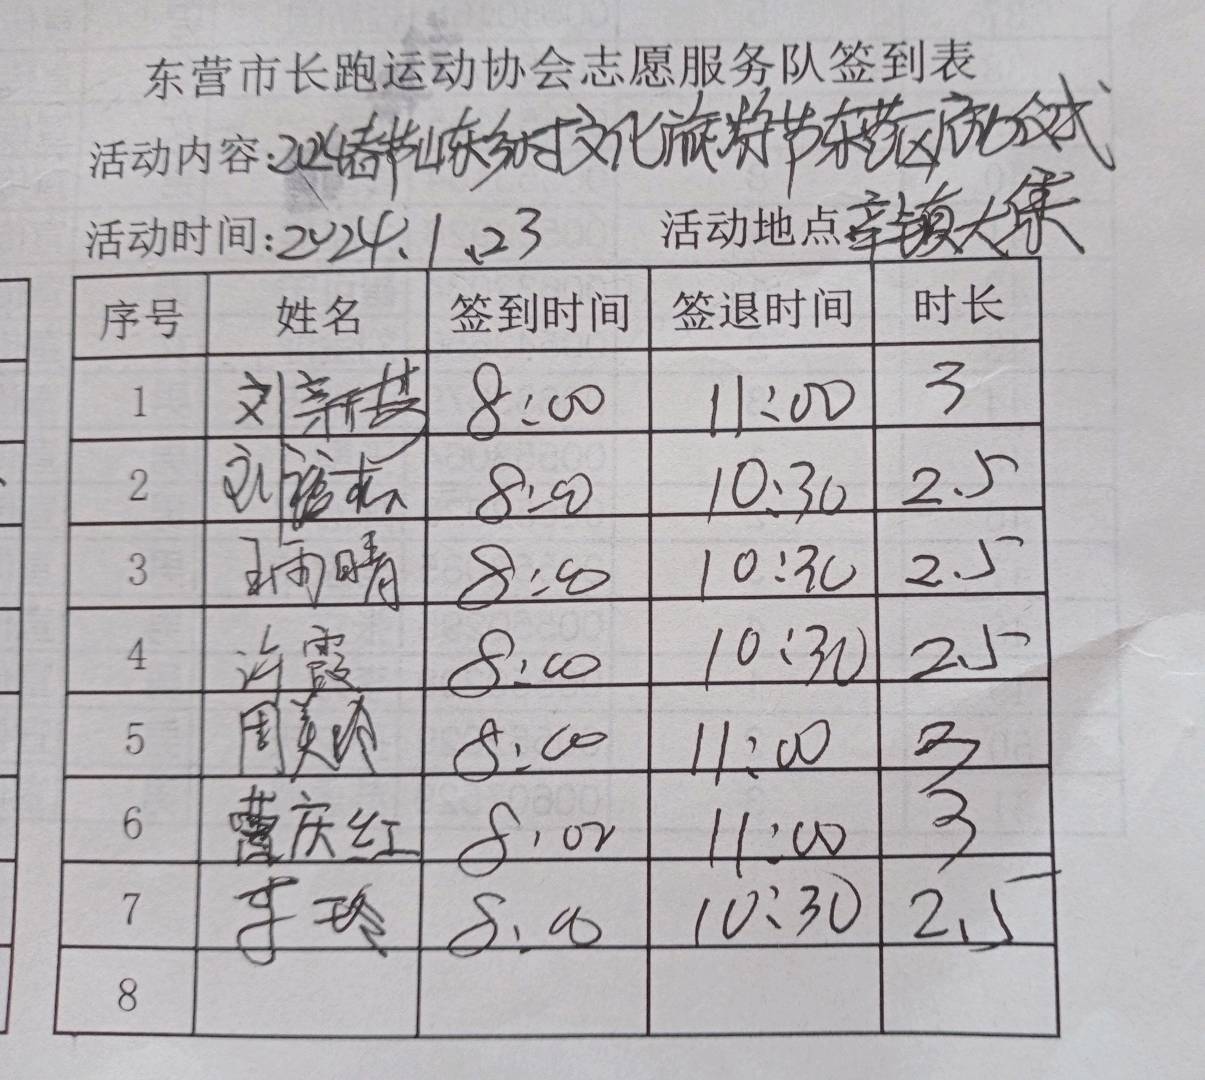 东营市长跑运动协会志愿服务队签到表
活动内容:2024春节山东乡村文化旅游节东营区启动仪式
活动时间:2024.1.23 活动地点辛镇大集
序号 姓名 签到时间 签退时间 时长
1 刘新 8:00 11:00 3
2 刘 8:00 10:30 2.5
3 王雨晴 8:00 10:30 2.5
4 许霞 8:00 10:30 2.5
5 周美玲 8:00 11:00 3
6 曹庆红 8:00 11:00 3
7 李玲 8:00 10:30 2.5
8